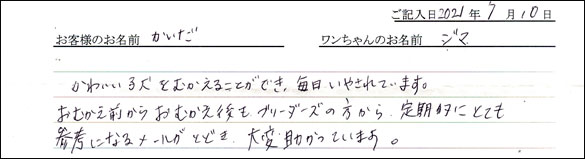 ご記入日2021年7月10日
お客様のお名前 かいだ ワンちゃんのお名前 ジマ
かわいい子犬をむかえることができ、毎日いやされています。
おむかえ前からおむかえ後も、ブリーダーズの方から、定期的にとても
参考になるメールがとどき、大変助かっています。